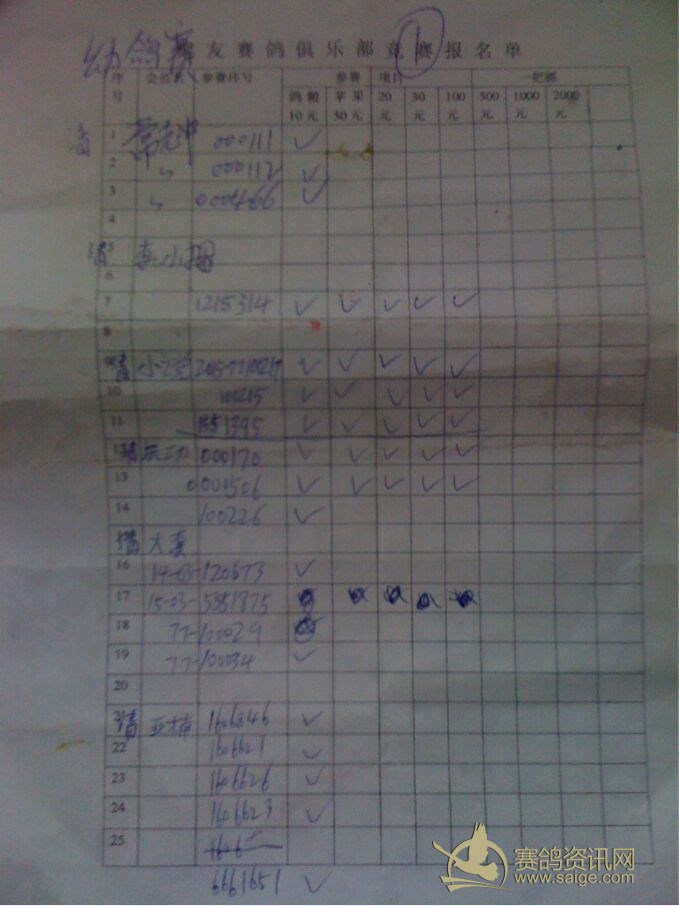 幼鸽赛 友赛鸽俱乐部竞赛报名单
序号 会员名 参赛环号 参赛 项目 一把抓
鸽粮10元 苹果50元 20元 30元 100元 500元 1000元 2000元
1 000111 ✓
2 〃 000112 ✓
3 〃 ✓
4
5 李小
6
7 1215314 ✓ ✓ ✓ ✓ ✓
8
✓ ✓ ✓ ✓ ✓
10 100215 ✓ ✓ ✓ ✓ ✓
11 ✓ ✓ ✓ ✓ ✓
000170 ✓ ✓ ✓ ✓ ✓
13 0001506 ✓ ✓ ✓ ✓ ✓
14 100226 ✓
清 大
16 14-03-120673 ✓
17 15-03-5851875
18 77-100029
19 77-100034 ✓
20
21 清 亚楠 1606846 ✓
22 1606621 ✓
23 1606626 ✓
24 1606623 ✓
25 1606
6661651 ✓
赛鸽资讯网
www.saige.com